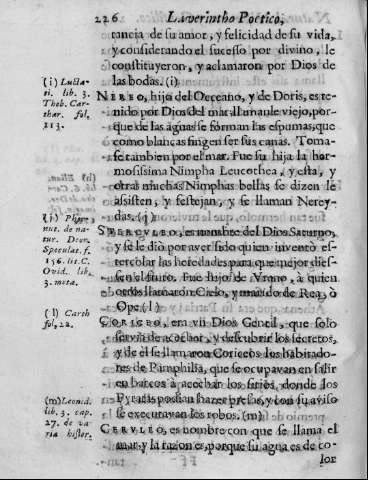 226 Laverintho Poetico,
tancia de su amor, y felicidad de su vida,
y considerando el sucesso por divino, le
constituyeron, y aclamaron por Dios de
las bodas. (i)
(i) Lucta-
ti. lib. 3.
Theb. Car-
thar. fol.
213.
NEREO, hijo del Occeano, y de Doris, es te-
nido por Dios del mar, llamanle viejo, por-
que de las aguas se forman las espumas, que
como blancas fingen ser sus canas. Toma-
se tambien por el mar. Fue su hija la her-
mosissima Nimpha Leucothea, y esta, y
otras muchas Nimphas bellas se dizen le
assisten, y festejan, y se llaman Nerey-
das. (j)
(j) Phor-
nut. de na-
tur. Deor.
Speculat. f.
156. lit. C.
Ovid. lib.
3. meta.
SPERCVLEO, es nombre del Dios Saturno,
y se le diò por aver sido quien inventò es-
tercolar las heredades para que mejor dies-
sen el fruto. Fue hijo de Vrano, à quien
otros llamaron Cielo, y marido de Rea, ò
Ope. (l)
(l) Carth
fol, 22.
CORICEO, era vn Dios Gentil, que solo
servia de acechar, y descubrir los secretos,
y de èl se llamaron Coriceos los habitado-
res de Pamphilia, que se ocupavan en salir
en barcos à acechar los sitios, donde los
Pyratas podian hazer presas, y con su aviso
se executavan los robos. (m)
(m) Leonid.
lib. 3. cap.
27. de va-
ria histor.
CERVLEO, es nombre con que se llama el
mar, y la razon es, porque su agua es de co-
lor